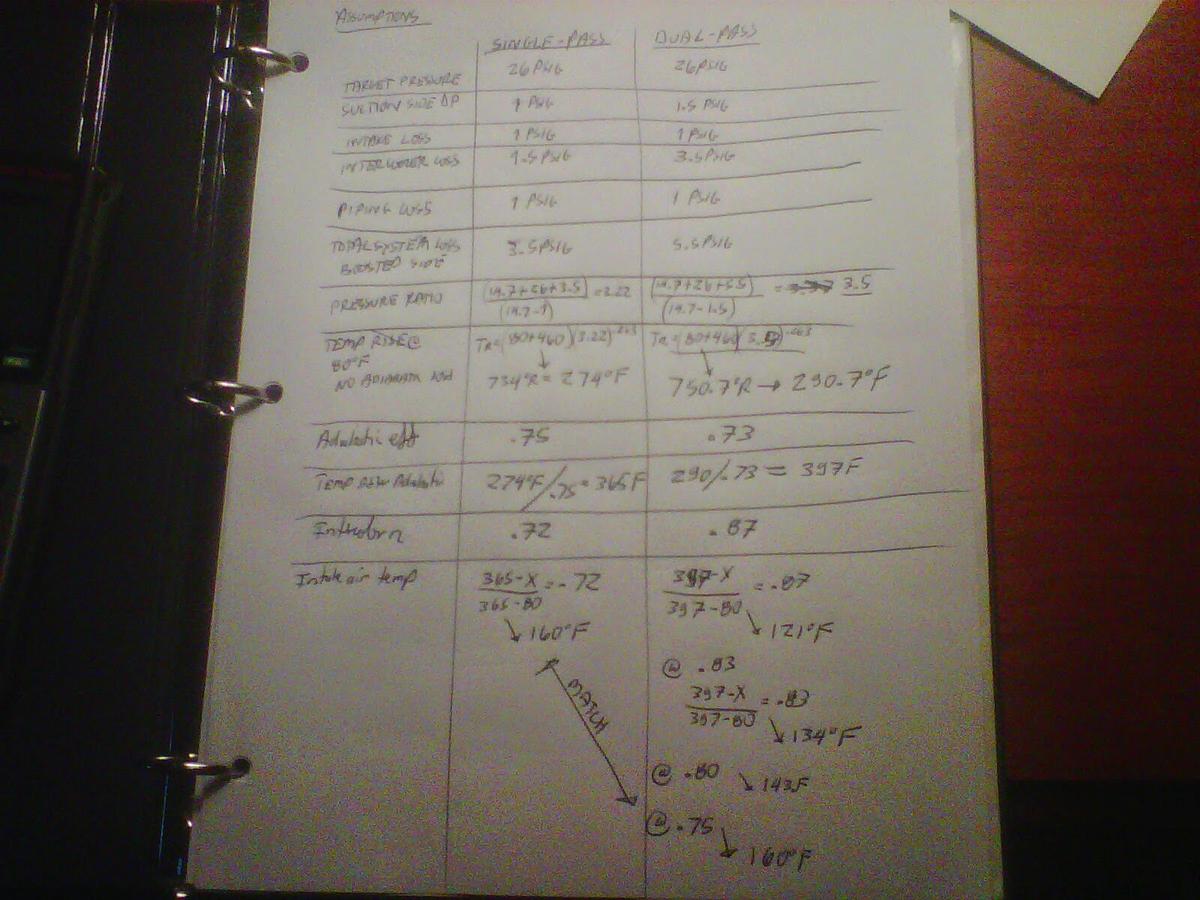 ASSUMPTIONS
SINGLE-PASS DUAL-PASS
TARGET PRESSURE 26 PSIG 26 PSIG
SUCTION SIDE DP 1 PSIG 1.5 PSIG
INTAKE LOSS 1 PSIG 1 PSIG
INTERCOOLER LOSS 1.5 PSIG 3.5 PSIG
PIPING LOSS 1 PSIG 1 PSIG
TOTAL SYSTEM LOSS 3.5 PSIG 5.5 PSIG
BOOSTED SIDE
PRESSURE RATIO (14.7+26+3.5) = 3.22 (14.7+26+5.5) = 3.5
(14.7-1) (14.7-1.5)
TEMP RISE @ TR=(80+460)(3.22)^.263 TR=(80+460)(3.5)^.263
80°F
NO ADIABATIC 734°R = 274°F 750.7°R → 290.7°F
Adiabatic eff .75 .73
Temp after Adiabatic 274°F/.75 = 365F 290/.73 = 397F
.72 .87
Intake air temp 365-X = .72 397-X = .87
365-80 397-80
160°F 121°F
@ .83
MATCH 397-X = .83
397-80
134°F
@ .80 143F
@ .75
160°F